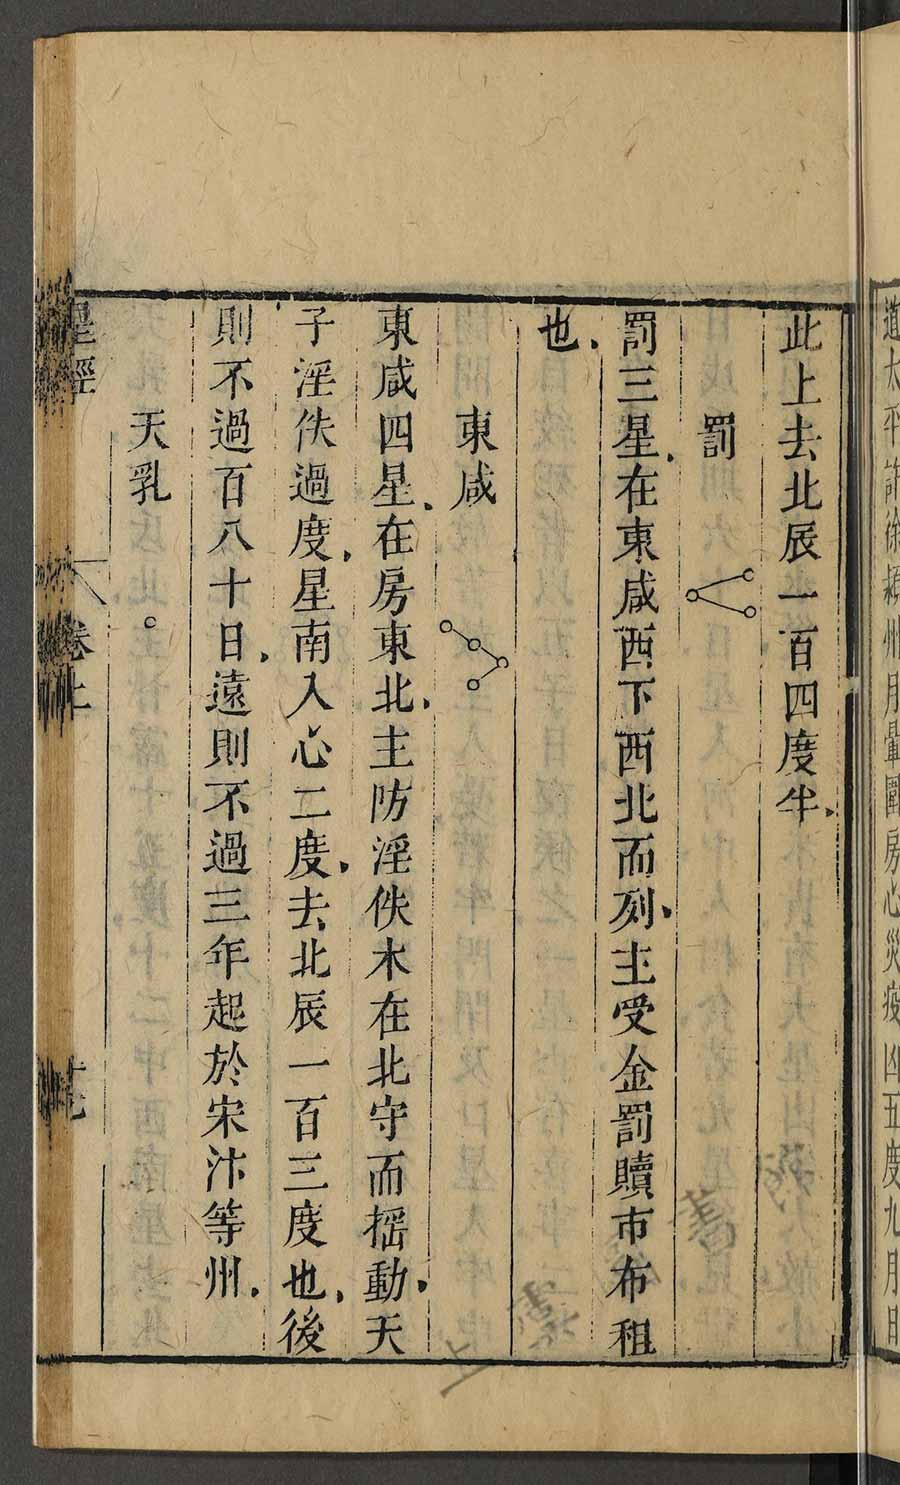 道太平許徐潁州月暈圍房心災疫凶五度九月日
此上去北辰一百四度半
罰
罰三星在東咸西下西北而列主受金罰贖市布租
也
東咸
東咸四星在房東北主防淫佚木在北守而揺動天
子淫佚過度星南入心二度去北辰一百三度也後
則不過百八十日遠則不過三年起於宋汴等州
天乳
星經
卷上